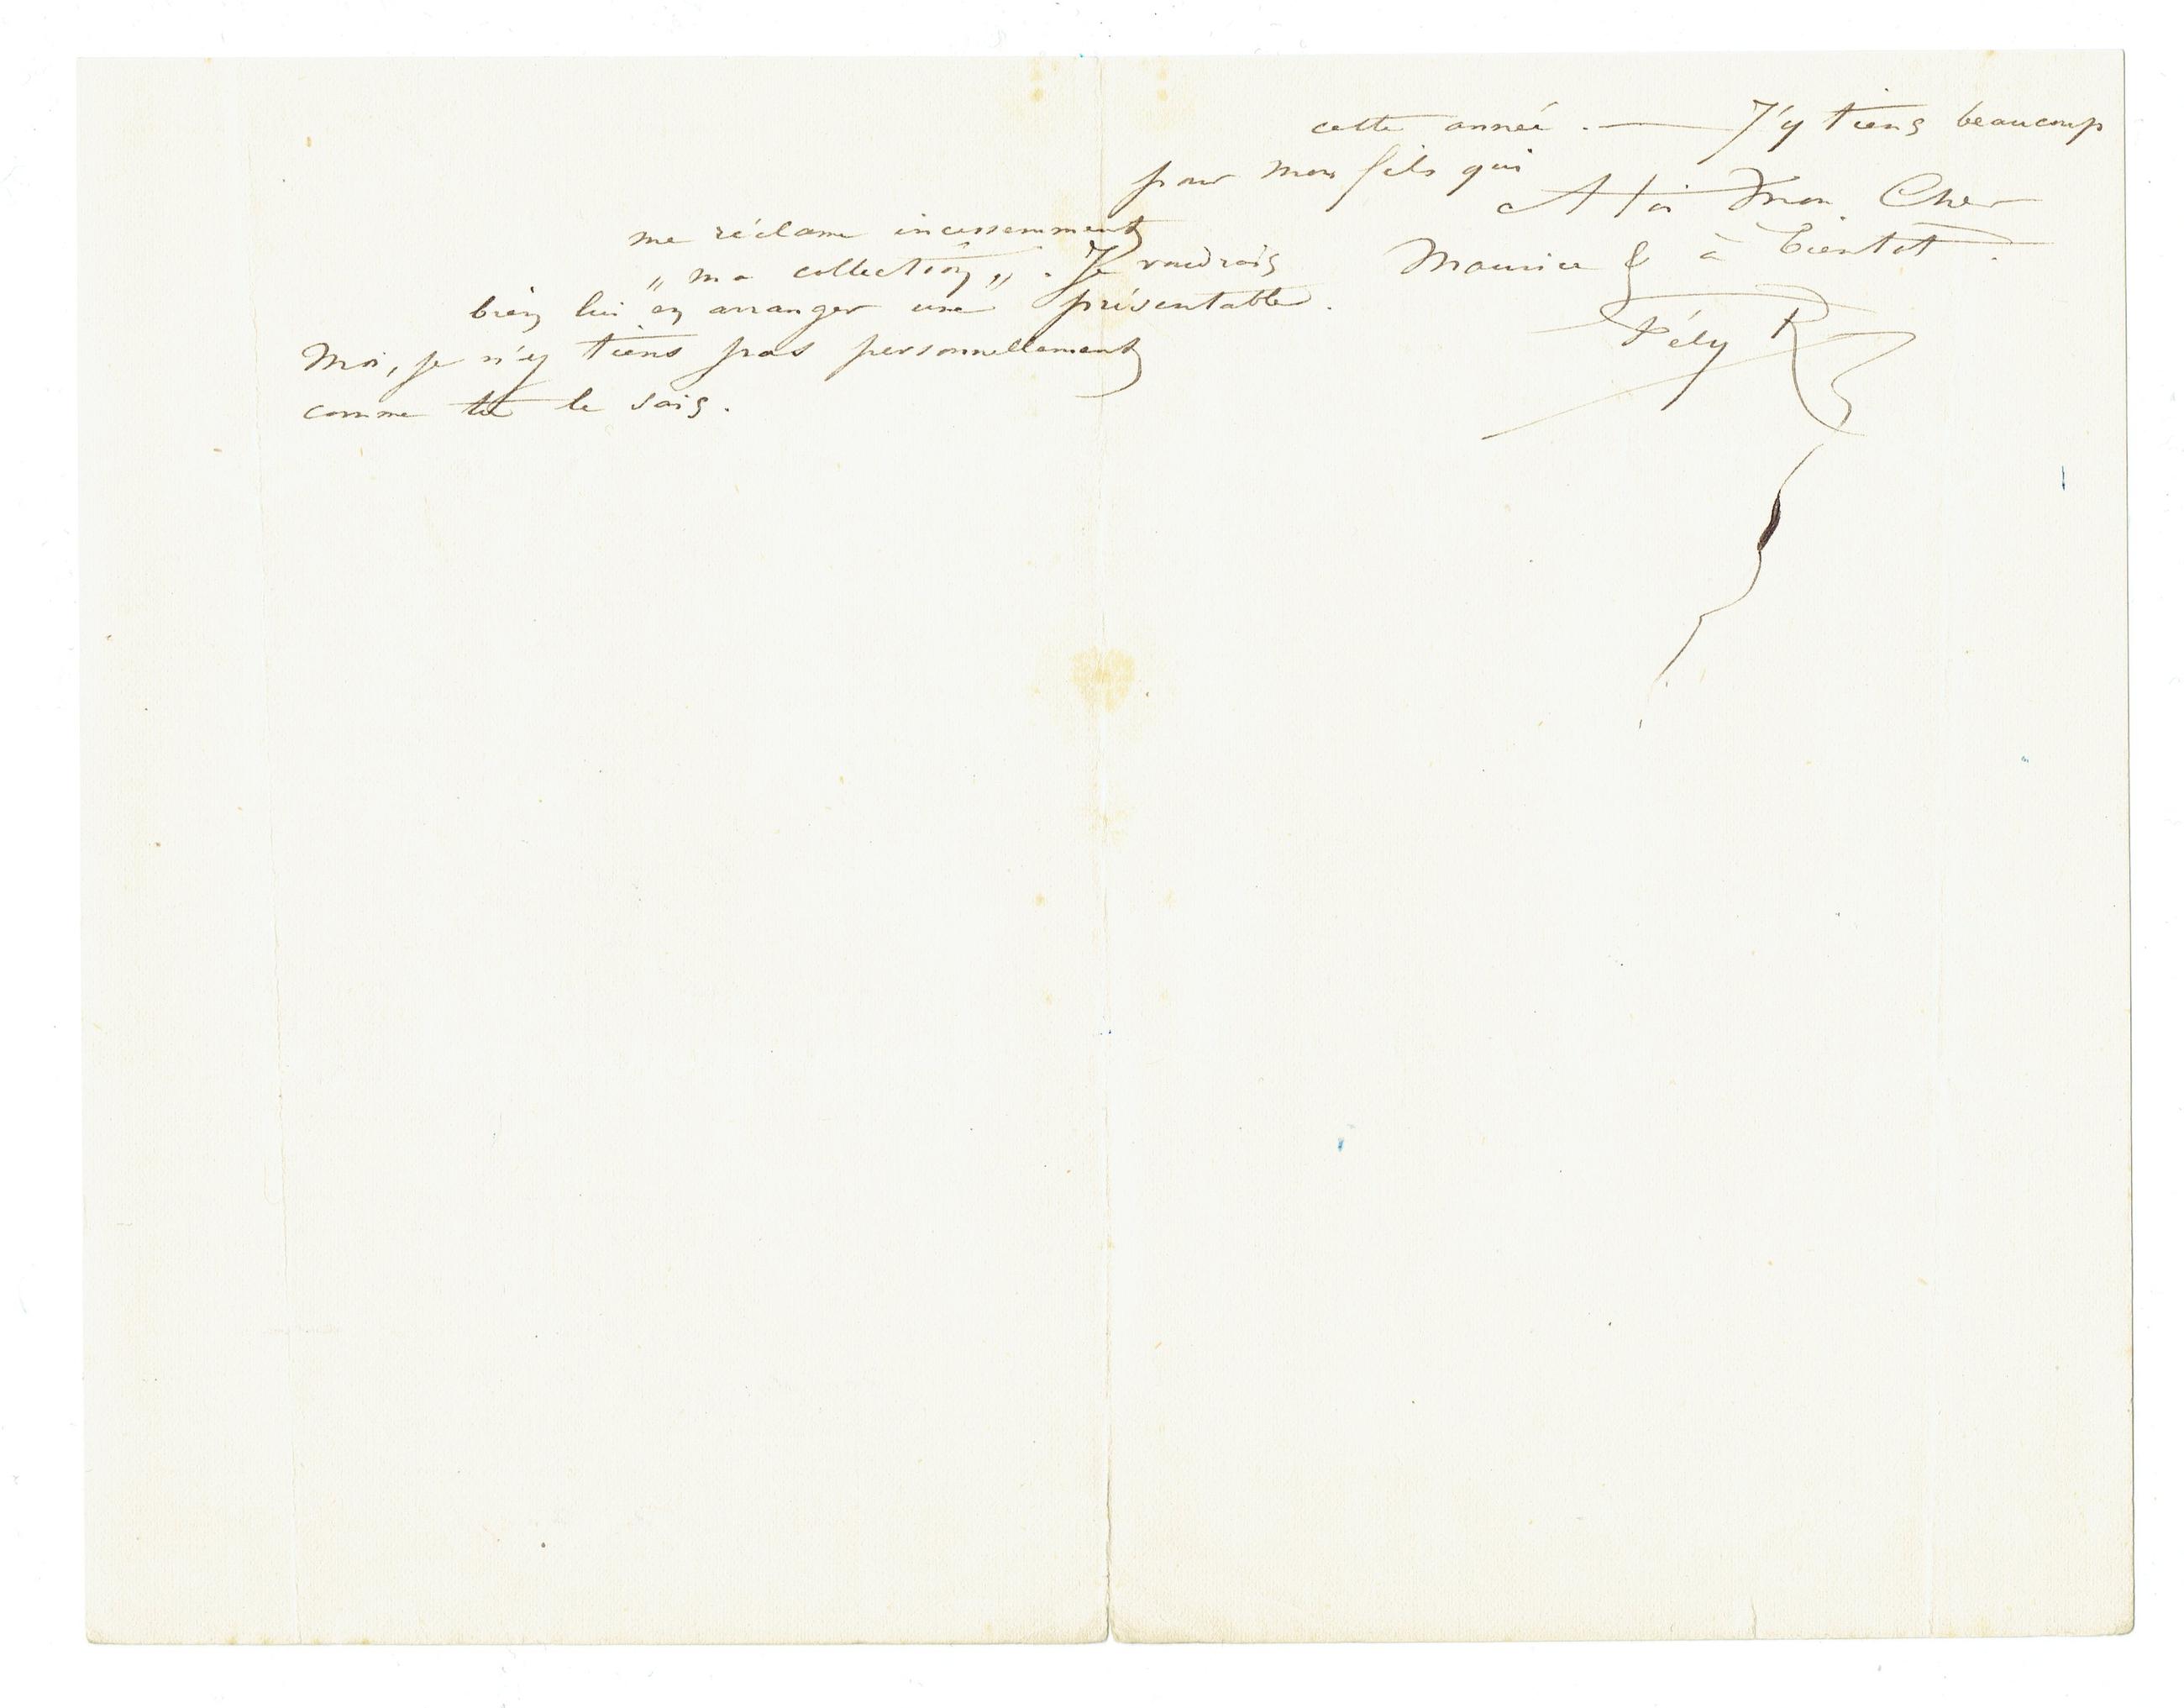 cette année. — J'y tiens beaucoup
pour mon fils qui
me réclame incessemment
„ ma collection „ . Je voudrais
bien lui en arranger une présentable.
Moi, je n'y tiens pas personnellement
comme tu le sais.
A toi Mon Cher
Maurice & à bientot.
Fély R